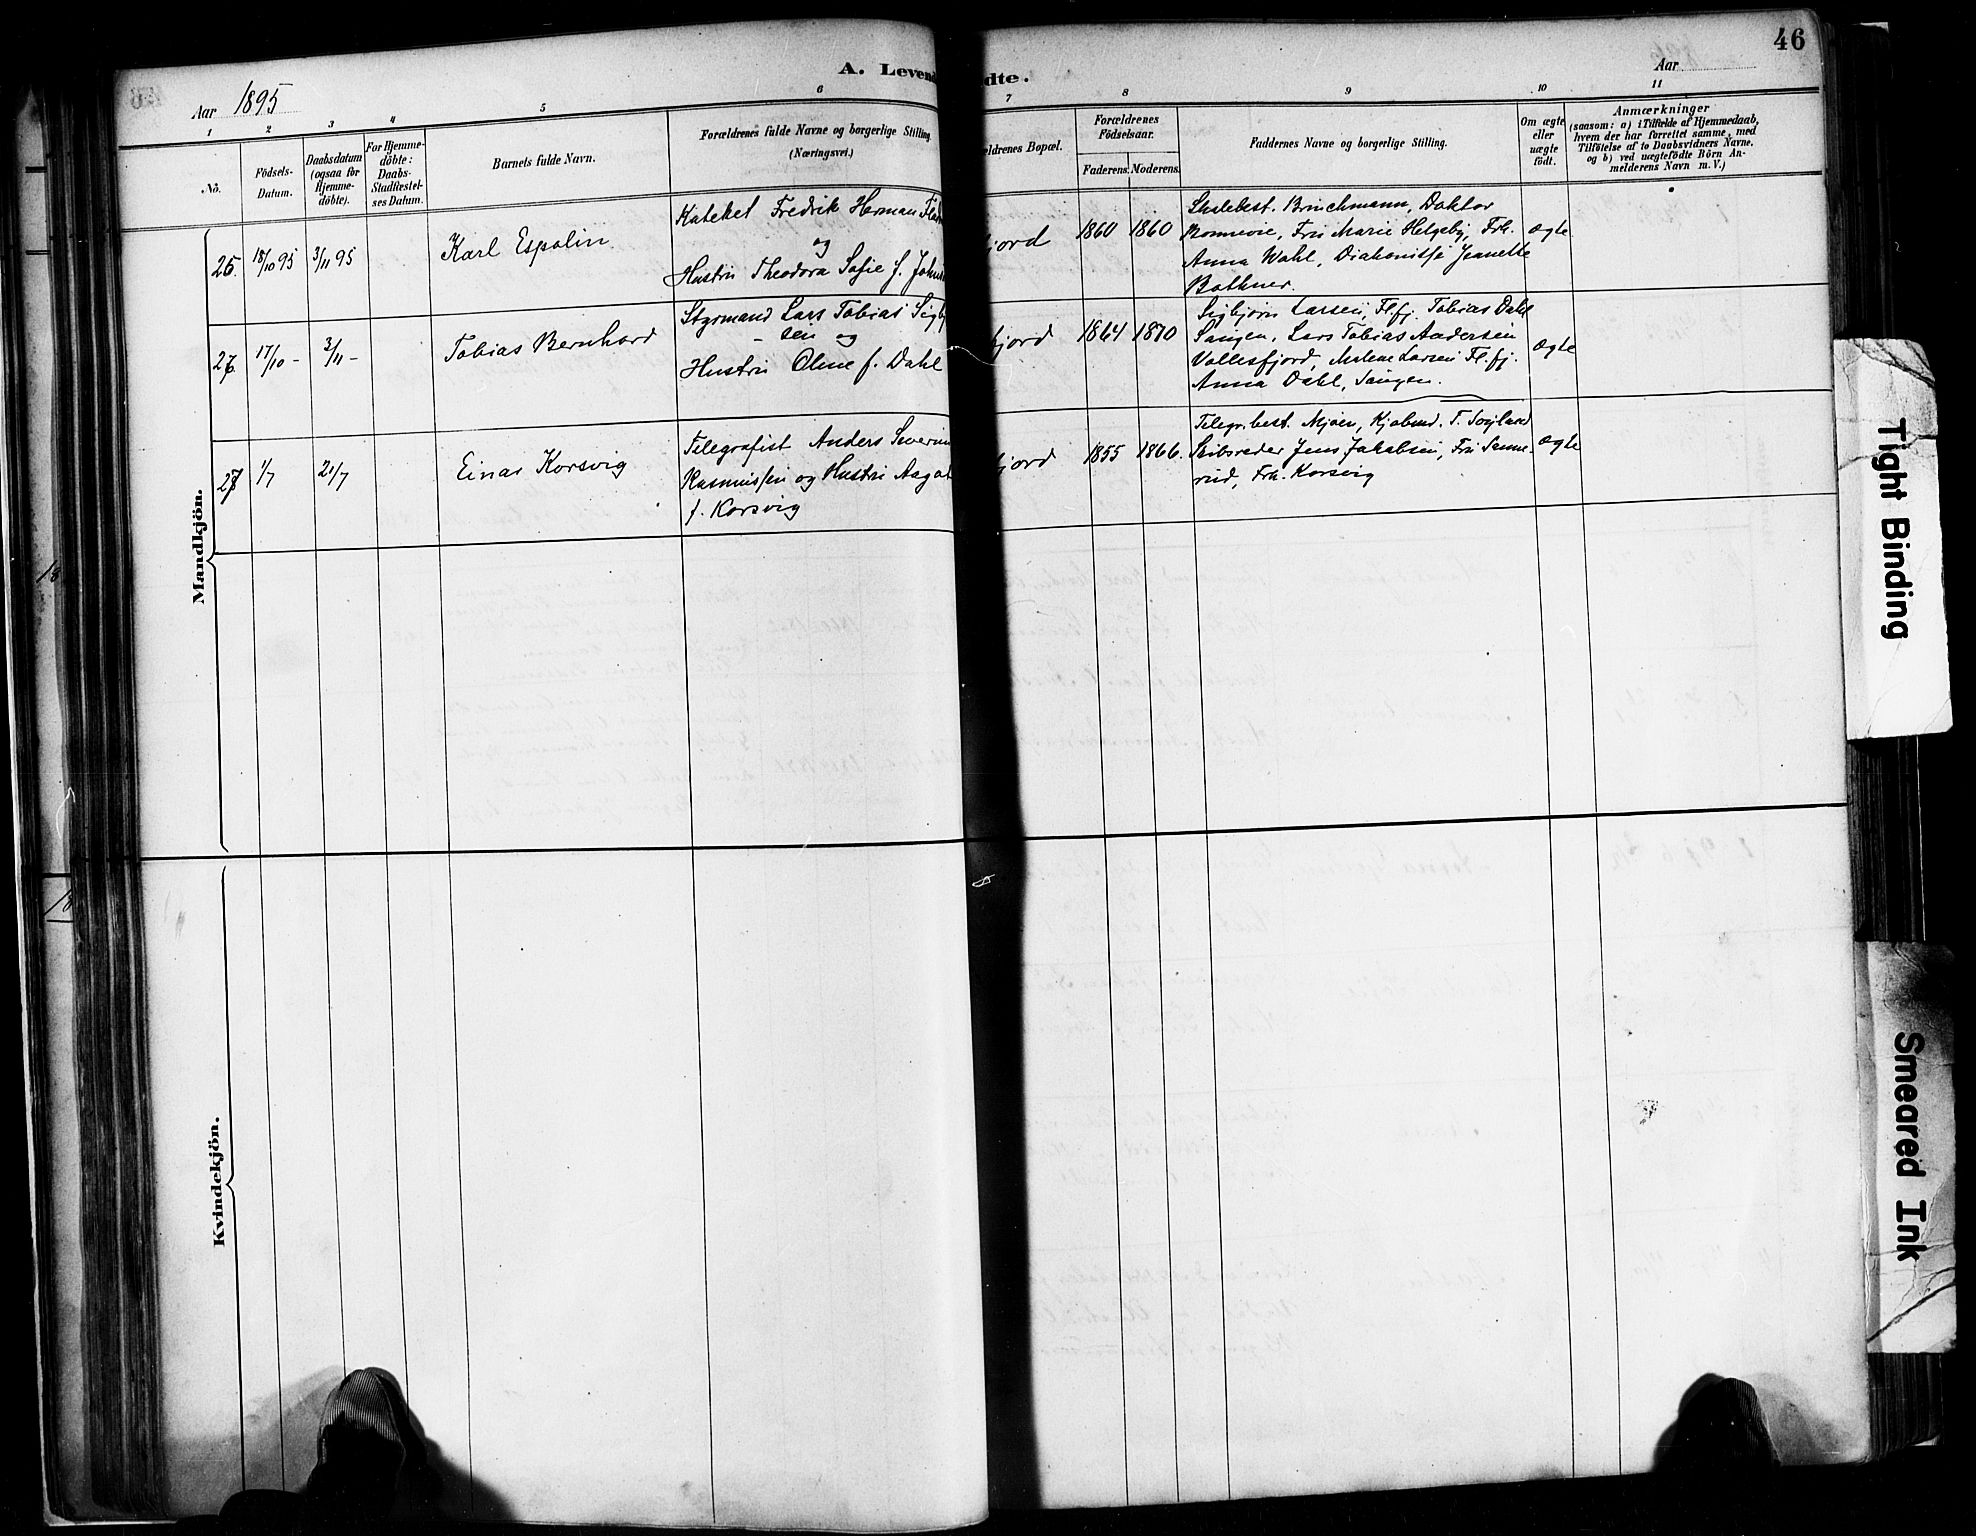 46
Aar 1895
A. Levend
dte.
Aar
1 2 3 4 5 6 7 8 9 10 11
No.
Födsels-
Datum.
Daabsdatum
(ogsaa for
Hjemme-
döbte).
For Hjemme-
döbte:
Daabs-
Stadfæstel-
ses Datum.
Barnets fulde Navn.
Forældrenes fulde Navne og borgerlige Stilling.
(Næringsvei.)
ældrenes Bopæl.
Forældrenes
Födselsaar.
Faderens. Moderens.
Faddernes Navne og borgerlige Stilling.
Om ægte
eller
uægte
födt.
Anmærkninger
(saasom: a) i Tilfælde af Hjemmedaab,
hvem der har forrettet samme, med
Tilföielse af to Daabsvidners Navne,
og b) ved uægtefödte Börn An-
melderens Navn m. V.)
Mandkjön.
25. 18/10 95 3/11 95 Karl Espolin
Kateket Fredrik Herman
og
Hustru Theodora Sofie f.
jord 1860 1860
Skolebest. Brinchmann, Doktor
Bonnevie, Fru Marie Helgeby, Frk.
Anna Wahl, Diakonisse Jeanette
Bothner.
ægte
26. 17/10 - 3/11 - Tobias Bernhard
Styrmand Lars Tobias Sigbj
- sen og
Hustru Oline f. Dahl
fjord 1864 1870
Sigbjørn Larsen, Fl.fj. Tobias Dahl
Saugen, Lars Tobias Andersen
Vollesfjord, Malene Larsen Fl.fj.
Anna Dahl, Saugen.
ægte
27 1/7 21/7 Einar Korsvig
Telegrafist Anders Severin
Rasmussen og Hustru Aagot
f. Korsvig
fjord 1855 1866.
Telegr.best. Mjøen, Kjøbmd. T.
Skibsreder Jens Jakobsen, Fru Sanne-
rud, Frk. Korsvig
ægte
Kvindekjön.
Tight Binding
Smeared Ink